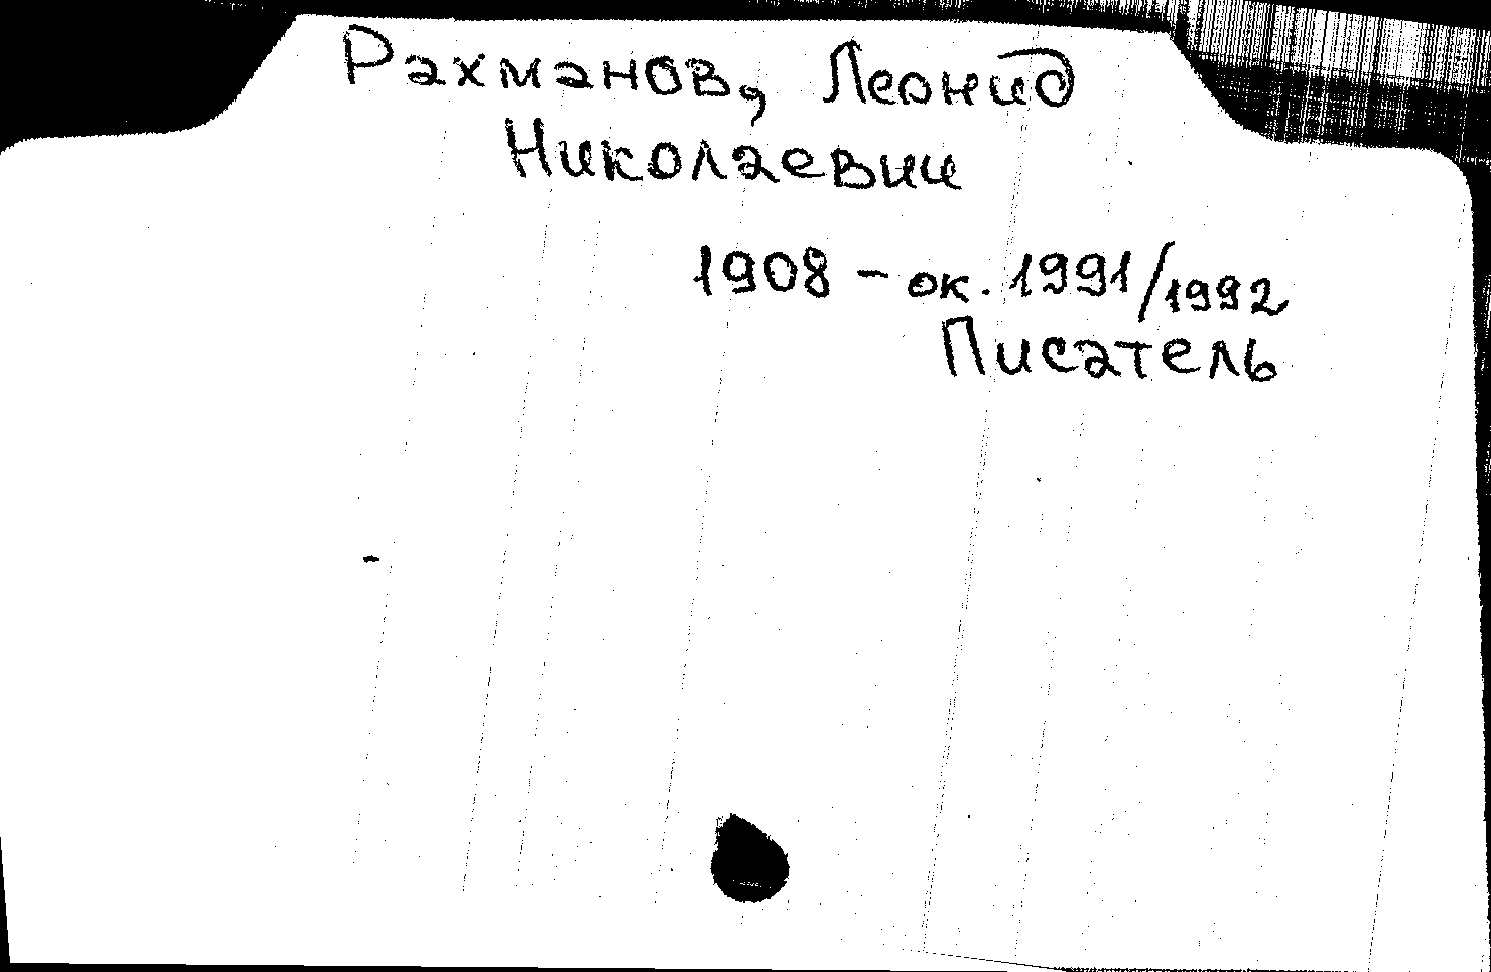 Рахманов, Леонид
Николаевич
1908 – ок. 1991/1992
Писатель